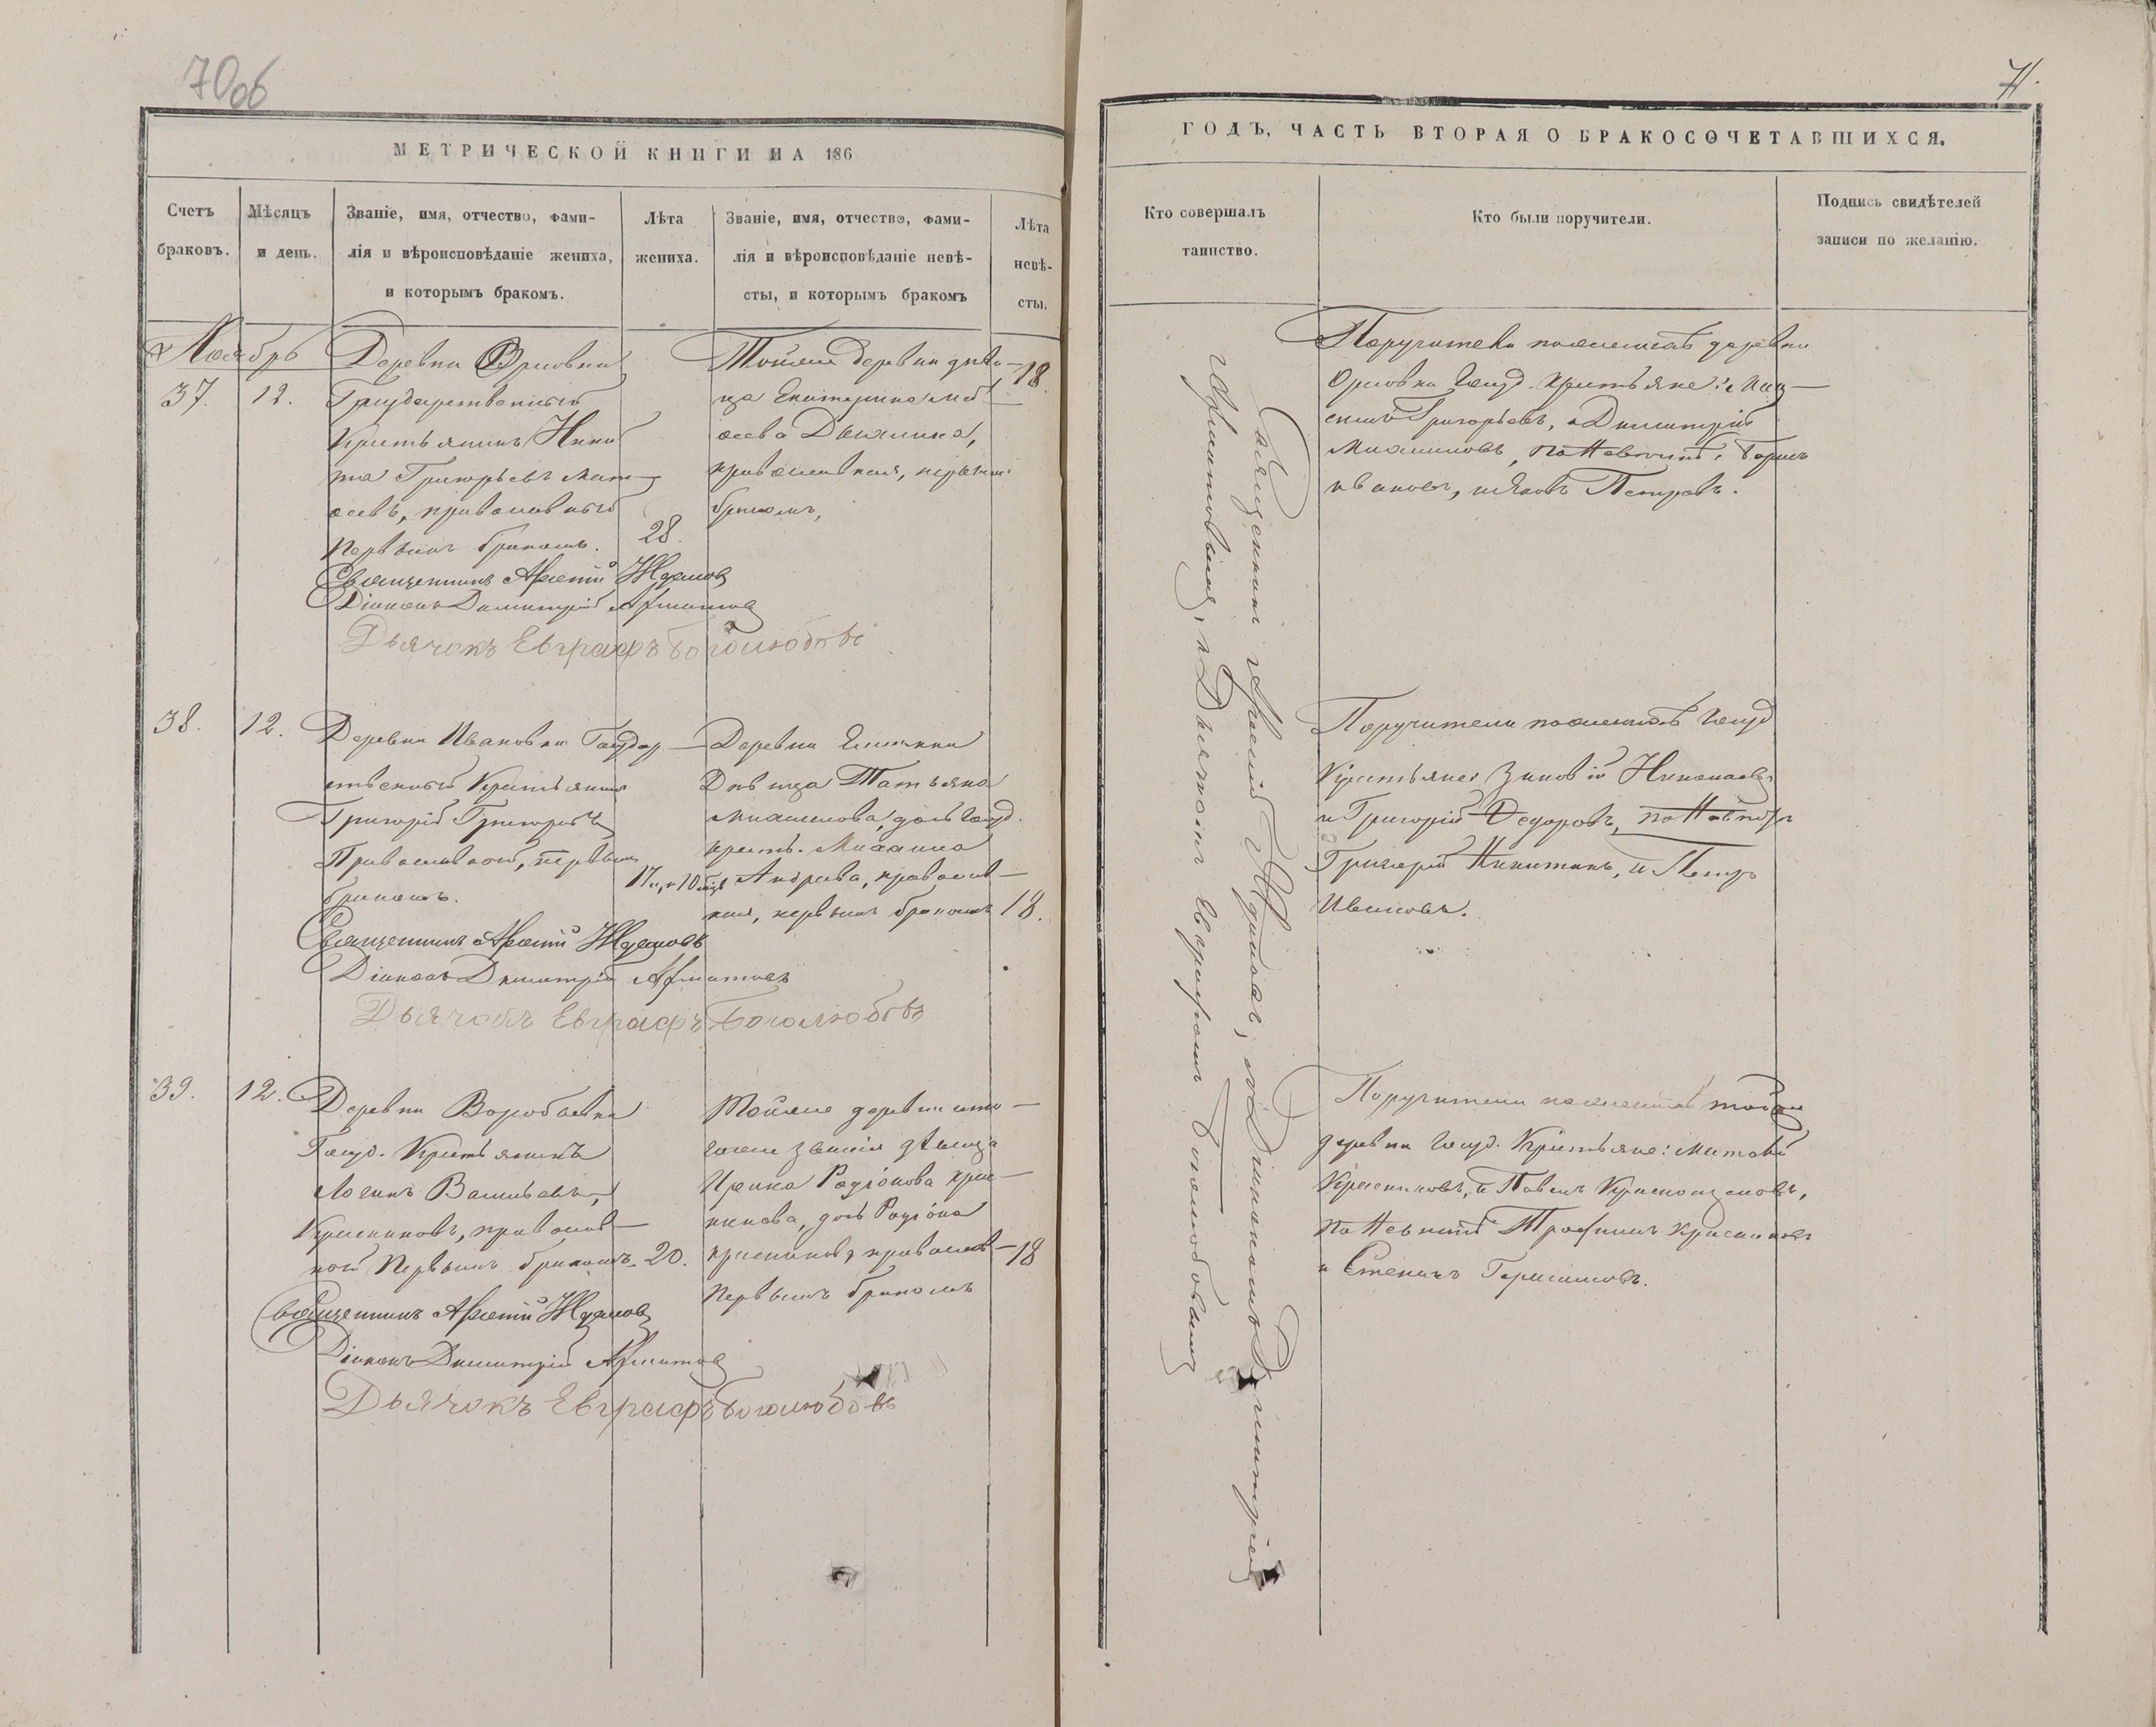 70об
МЕТРИЧЕСКОЙ КНИГИ НА 186
Счетъ браковъ.
Мѣсяцъ и день.
Званіе, имя, отчество, фами-
лія и вѣроисповѣданіе жениха,
и которымъ бракомъ.
Лѣта
жениха.
Званіе, имя, отчество, фами-
лія и вѣроисповѣданіе невѣ-
сты, и которымъ бракомъ
Лѣта
невѣ-
сты.
Ноябрь
37.
12.
Деревни Орловки
Государственный
Крестьянинъ Ники
та Григорьевъ
православный
Первымъ бракомъ.
28.
Тойже деревни дѣви-
ца Екатерина
православная, первымъ
бракомъ,
18.
Священникъ Арсеній Ждановъ
Діаконъ Димитрій
Дьячокъ Евграфъ Боголюбовъ
38.
12.
Деревни Ивановки Государ-
ственный Крестьянинъ
Григорій Григорьевъ
Православной, первымъ
бракомъ.
17 л. и 10 мѣс
Деревни
Дѣвица Татьяна
дочь Госуд.
крест. Михаила
Андреева, православ-
ная, первымъ бракомъ
18.
Священникъ Арсеній Ждановъ
Діаконъ Димитрій
Дьячокъ Евграфъ Боголюбовъ
39.
12.
Деревни Воробьевки
Госуд. Крестьянинъ
Логинъ Васильевъ,
Красниковъ, православ-
ной Первымъ бракомъ.
20.
Тойже деревни того
же званія дѣвица
Ирина Радіонова Крас-
никова, дочь Радіона
Красникова, православ-
Первымъ бракомъ
18
Священникъ Арсеній Ждановъ
Діаконъ Димитрій
Дьячокъ Евграфъ Боголюбовъ
71.
ГОДЪ, ЧАСТЬ ВТОРАЯ О БРАКОСОЧЕТАВШИХСЯ.
Кто совершалъ
таинство.
Кто были поручители.
Подпись свидѣтелей
записи по желанію.
Священникъ Арсеній Ждановъ, съ Діакономъ Димитріемъ
и Дьячкомъ Евграфомъ Боголюбовымъ
Поручители по женихѣ деревни
Орловки Госуд. Крестьяне:
Григорьевъ, и Димитрій
по Невѣстѣ: Борисъ
Ивановъ, и Яковъ Петровъ.
Поручители по женихѣ Госуд
Крестьяне: Зиновій Николаевъ
и Григорій Федоровъ, по Невѣстѣ
Григорій Никитинъ, и Петръ
Ивановъ.
Поручители по женихѣ тойже
деревни Госуд. Крестьяне: Матвѣй
Красниковъ, и Павелъ Краснощековъ,
по Невѣстѣ Трофимъ Красниковъ
и Степанъ Герасимовъ.